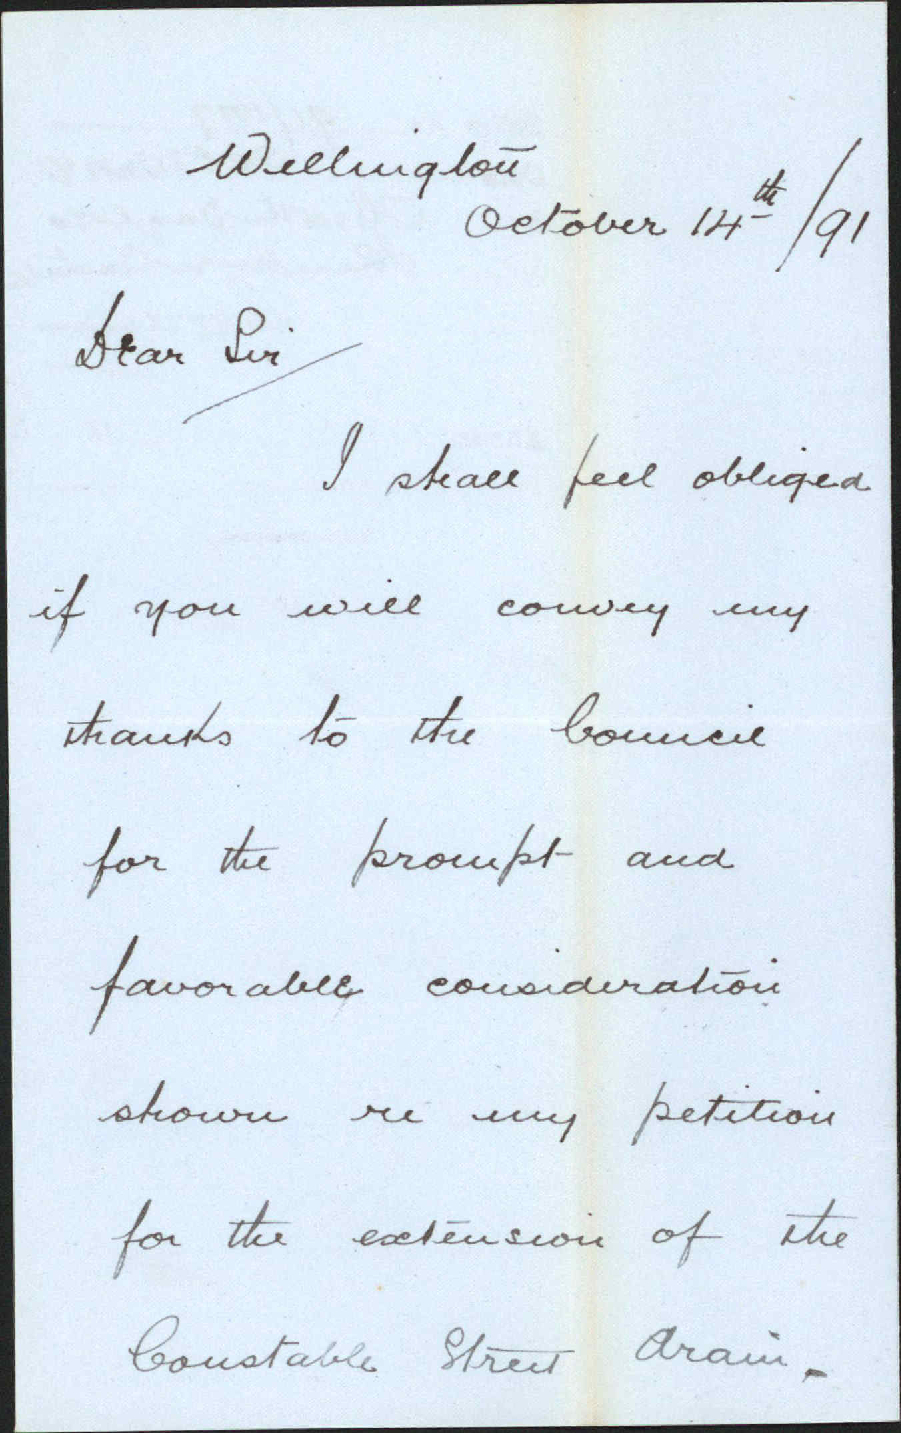 Wellington
October 14th /91
Dear Sir
I shall feel obliged
if you will convey my
thanks to the Council
for the prompt and
favorable consideration
shown re my petition
for the extension of the
Constable Street drain.